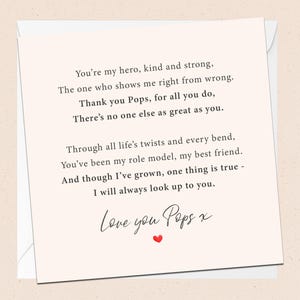 You're my hero, kind and strong,
The one who shows me right from wrong.
Thank you Pops, for all you do,
There's no one else as great as you.
Through all life's twists and every bend,
You've been my role model, my best friend.
And though I've grown, one thing is true -
I will always look up to you.
Love you Pops x